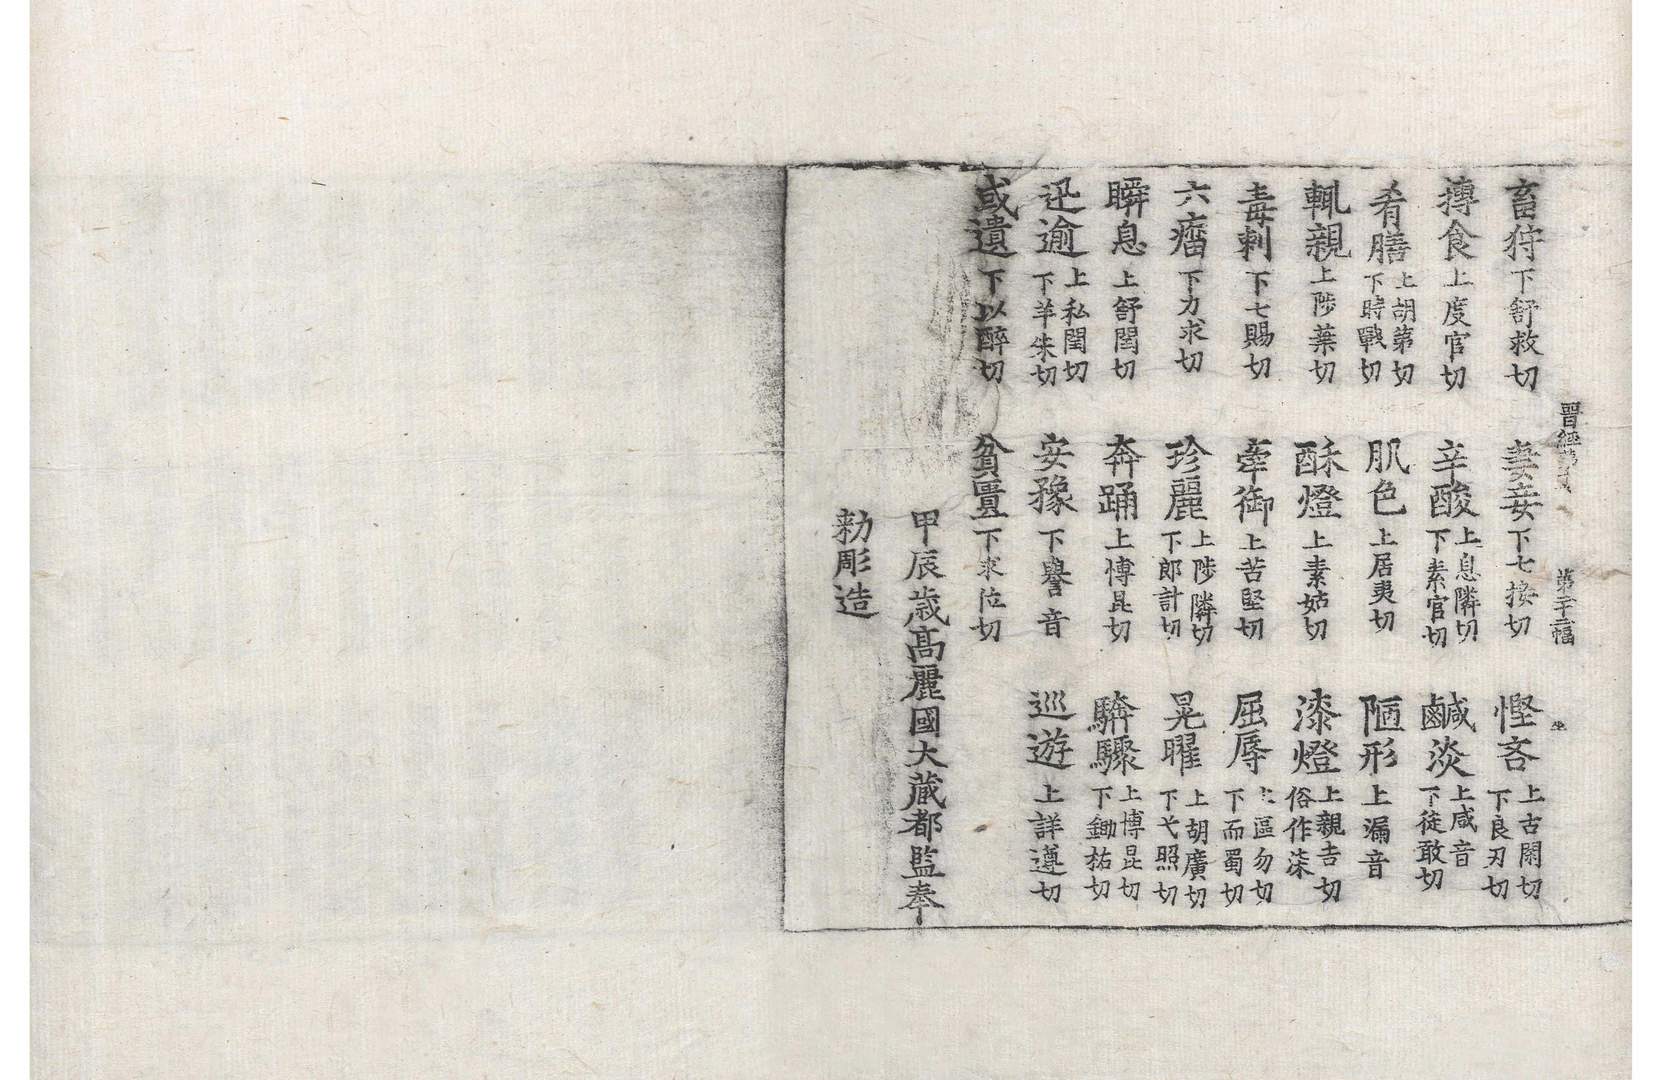 畜狩下舒救切 妻妾下七接切 慳吝上古閑切下良刃切
摶食上度官切 辛酸上息隣切下素官切 鹹淡上咸音下徒敢切
肴膳上胡茅切下時戰切 肌色上居夷切 陋形上漏音
輒親上陟葉切 酥燈上素姑切 漆燈上親吉切俗作柒
毒刺下七賜切 牽御上苦堅切 屈辱上區勿切下而蜀切
六瘤下力求切 珍麗上陟隣切下郎計切 晃曜上胡廣切下弋照切
瞬息上舒閏切 奔踊上博昆切 騎驟上博昆切下鋤祐切
迅逾上私閏切下羊朱切 安豫下譽音 巡遊上詳遵切
或遺下以醉切 貧匱下求位切
甲辰歳髙麗國大藏都監奉
勑彫造